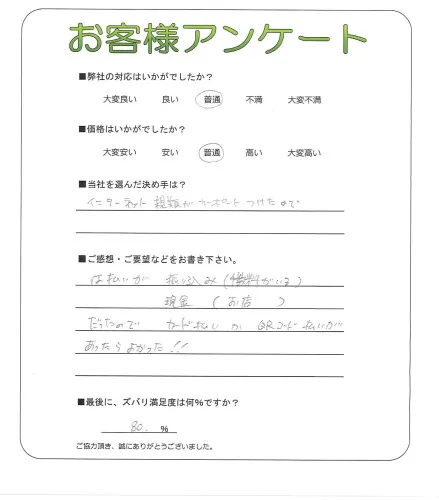 お客様アンケート
■弊社の対応はいかがでしたか?
大変良い 良い 普通 不満 大変不満
■価格はいかがでしたか?
大変安い 安い 普通 高い 大変高い
■当社を選んだ決め手は?
インターネット 種類が 1番 つけたので
■ご感想・ご要望などをお書き下さい。
払いが 振り込み(手数料がいる)
現金 ( お店 )
だったので カード払い か QRコード払いが
あったらよかった!!
■最後に、ズバリ満足度は何%ですか?
80. %
ご協力頂き、誠にありがとうございました。